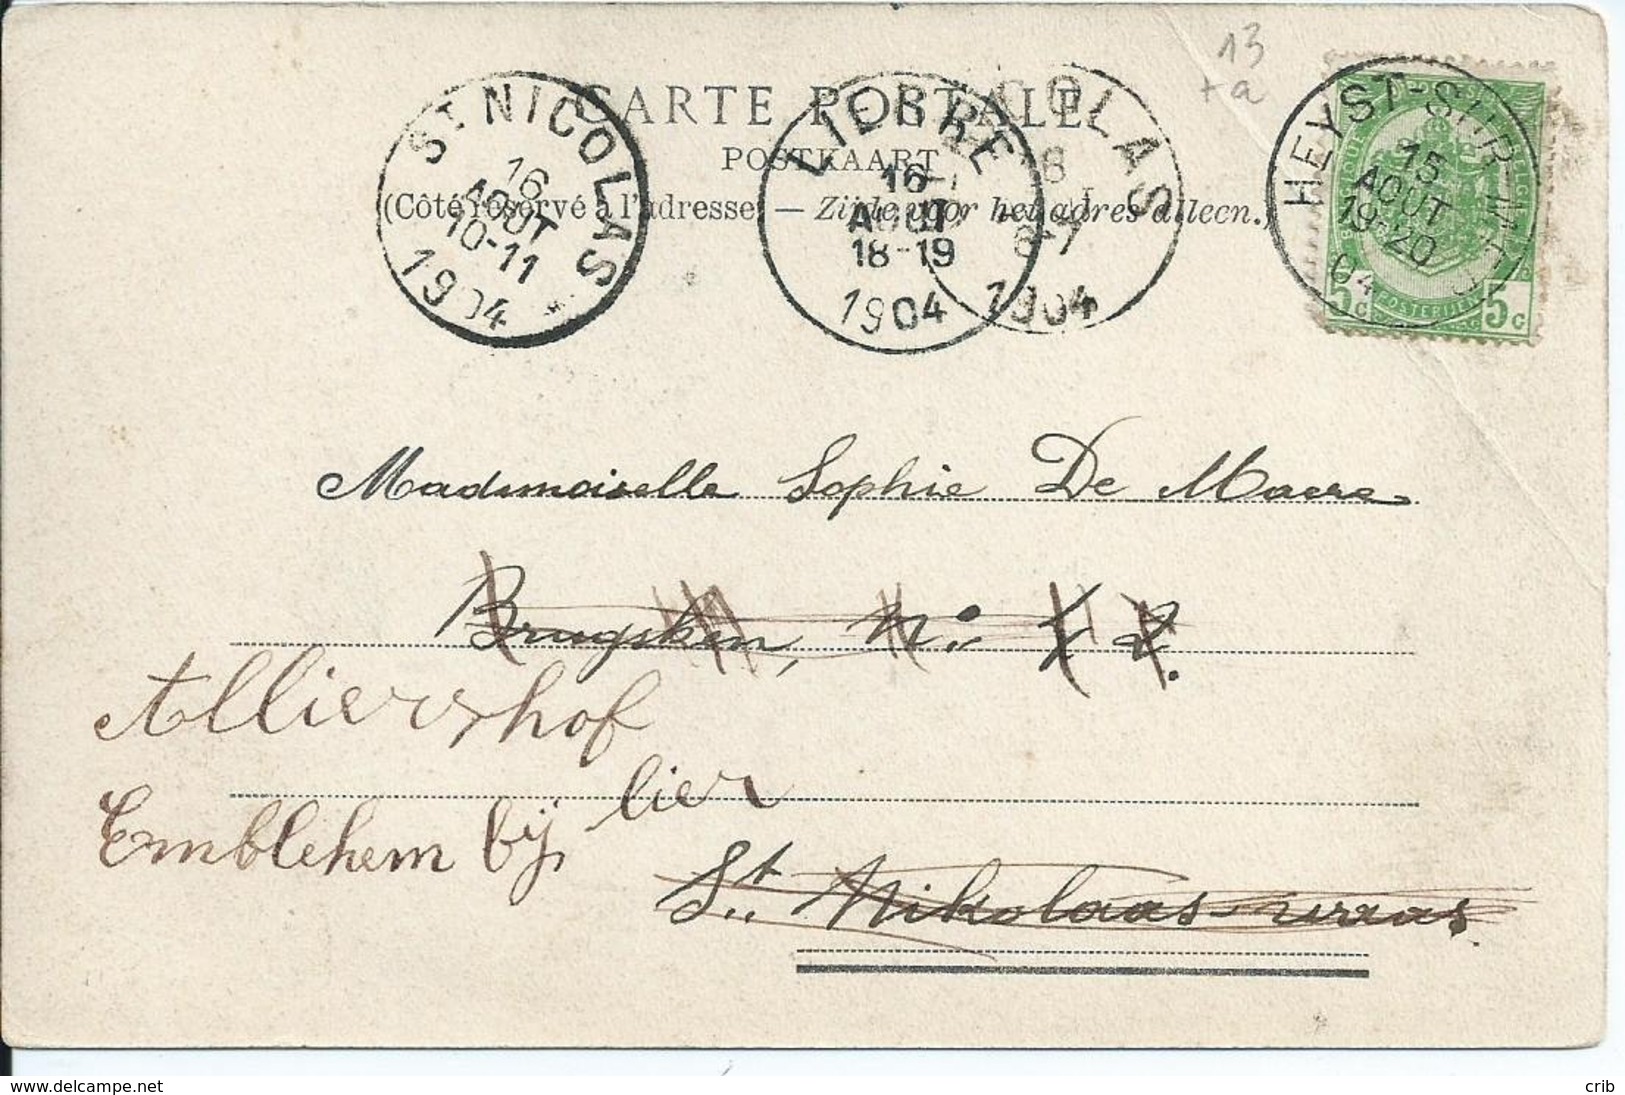 13
+a
CARTE POSTALE
POSTKAART
(Côté réservé à l'adresse. — Zijde voor het adres alleen.)
ST NICOLAS
16
AOUT
10-11
1904
LIERRE
16
AOUT
18-19
1904
COLAS
18
6-7
1904
HEYST-SUR-MER
15
AOUT
19-20
04
5c
5c
POSTERIJEN
Mademoiselle Sophie De Maere
Brugsken, No: 42.
Alliershof
Emblehem bij lier
St. Nikolaas-waas.
delcampe.net
crib